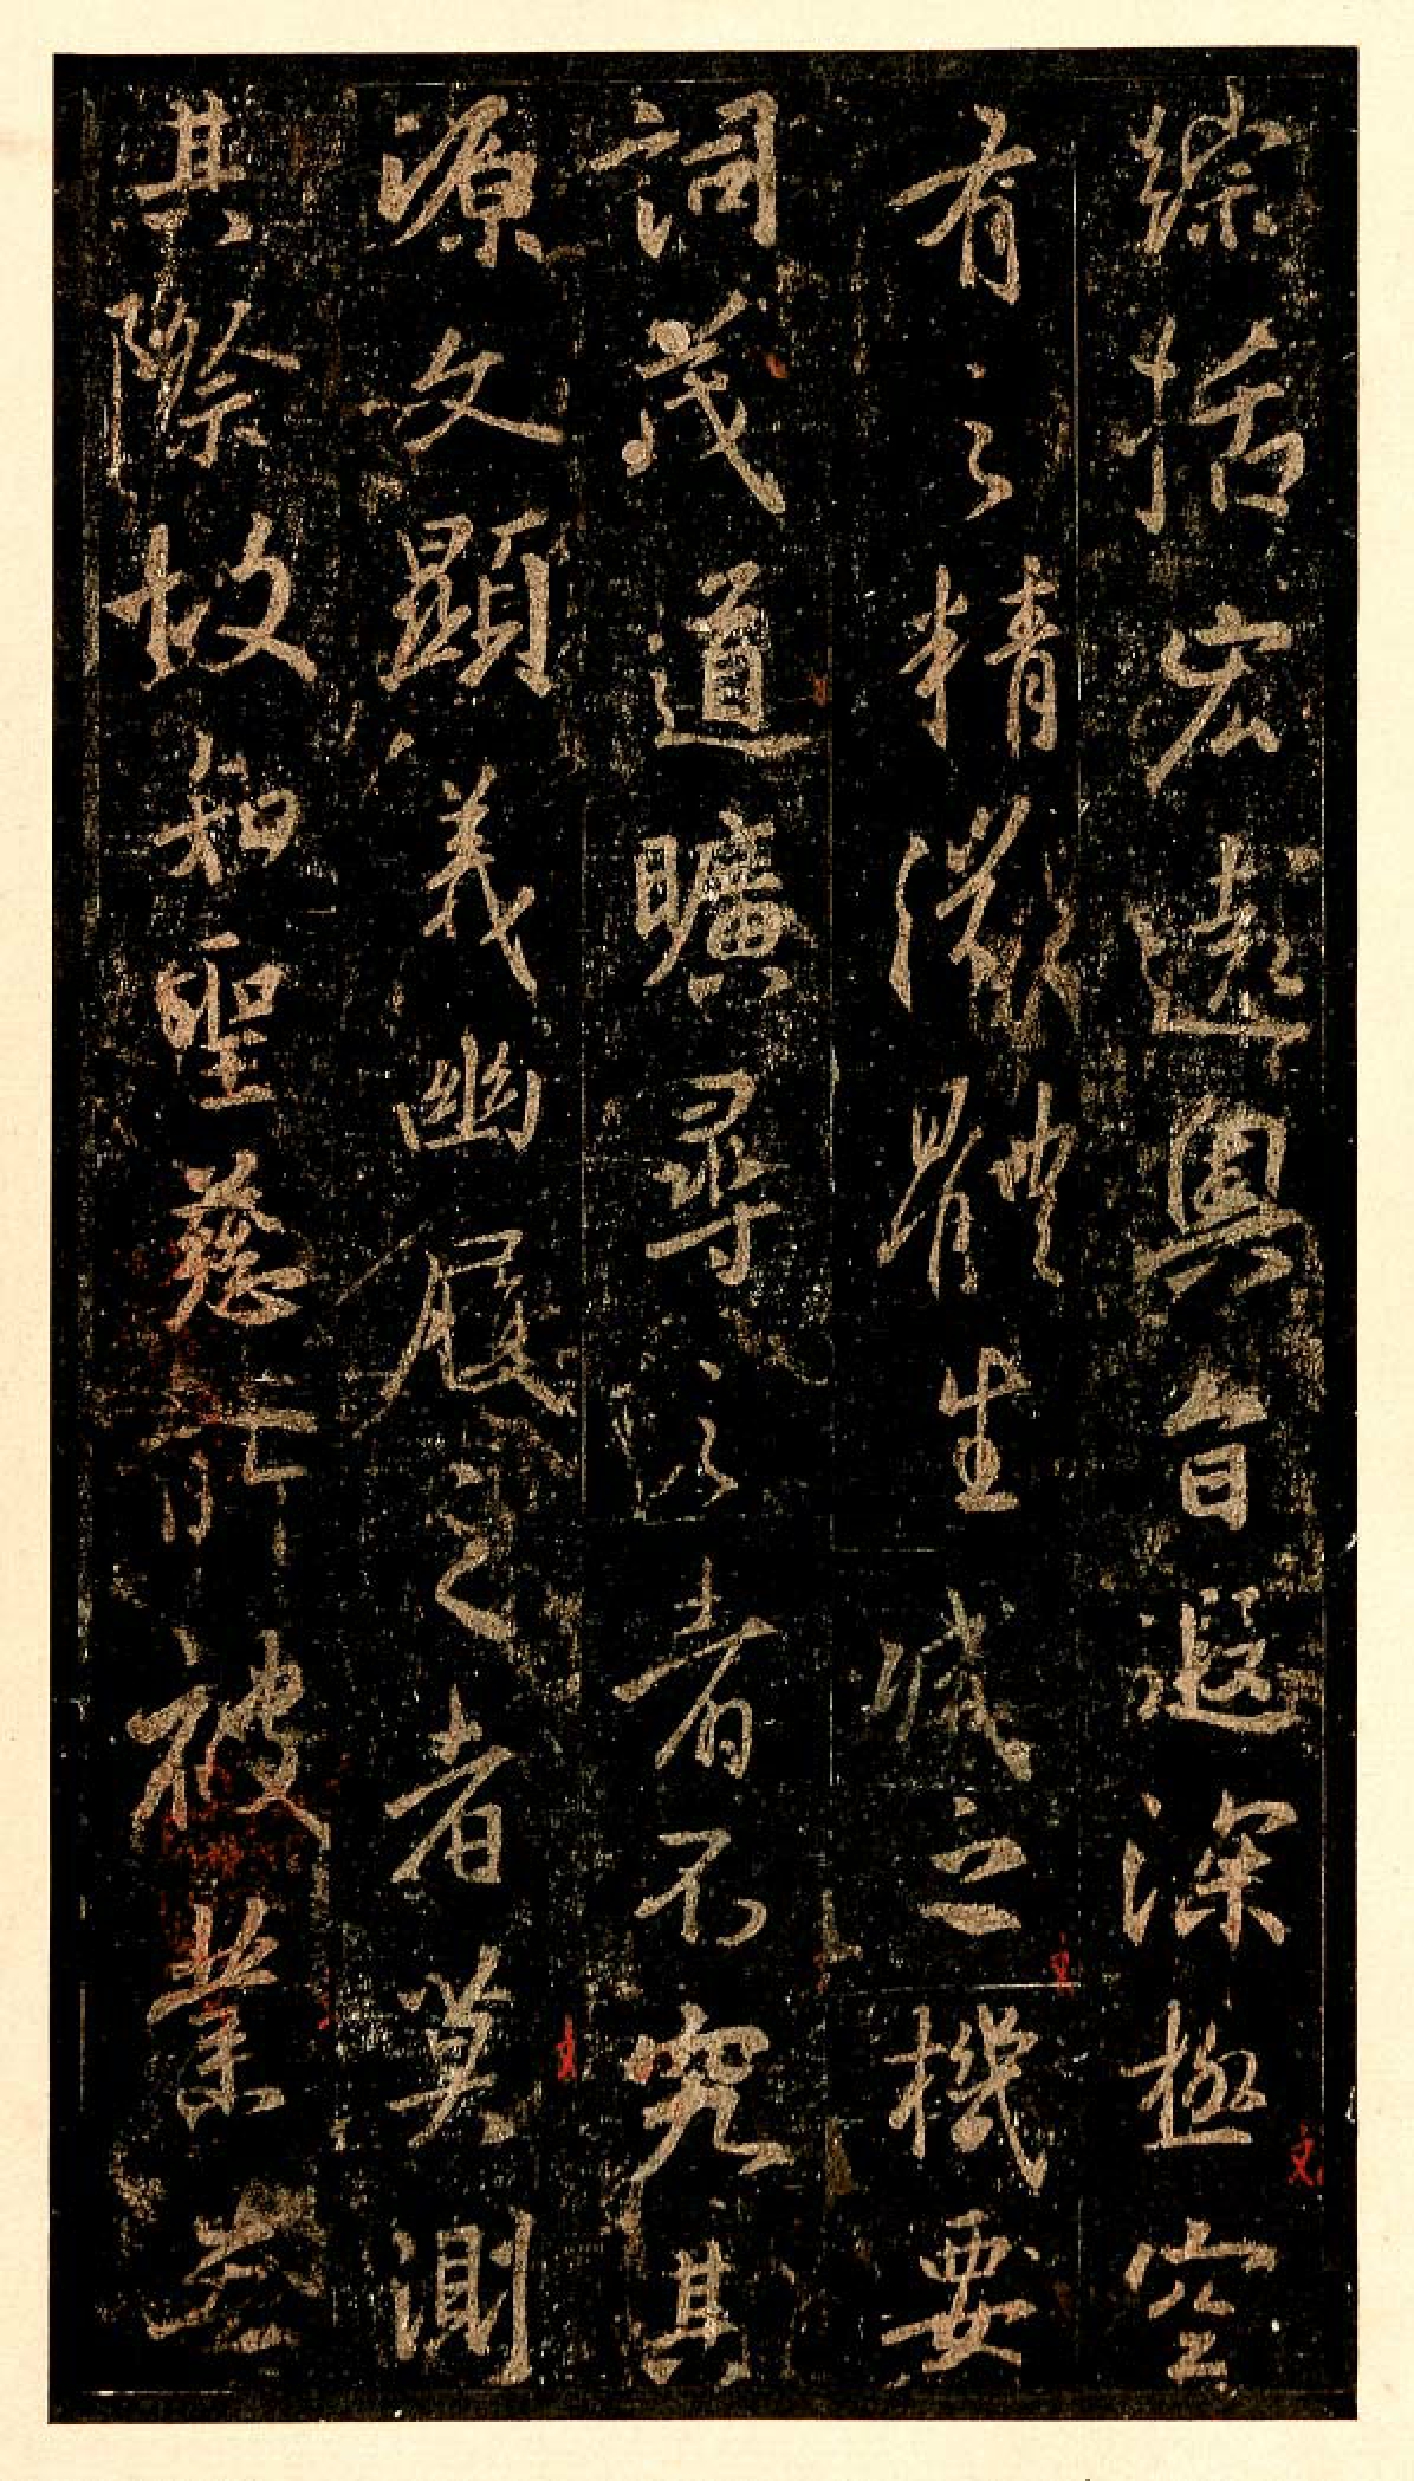 綜括宏遠奧旨遐深極空
有之精微體生滅之機要
詞茂道曠尋之者不究其
源文顯義幽履之者莫測
其際故知聖慈所被業無